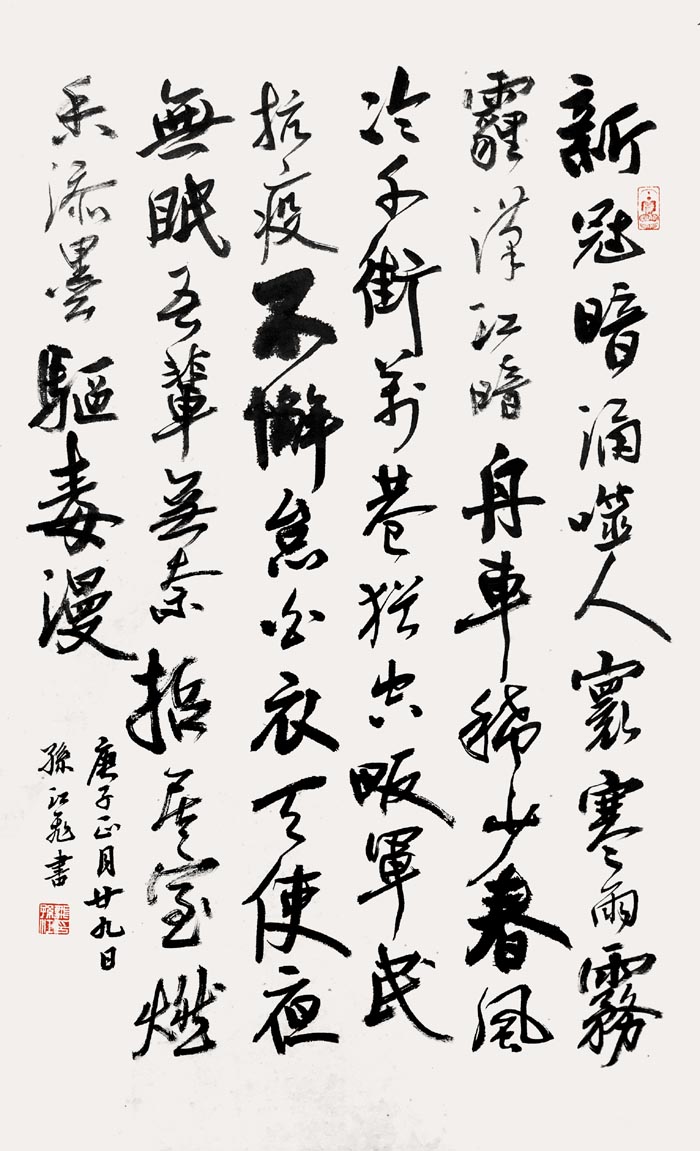 新冠暗涌噬人寰寒雨霧
霾漢江暗舟車稀少春風
冷千街萬巷猶空畈軍民
抗疫不懈怠白衣天使夜
無眠吾輩無奈居室燃
香添墨驅毒漫
庚子正月廿九日
孫江書